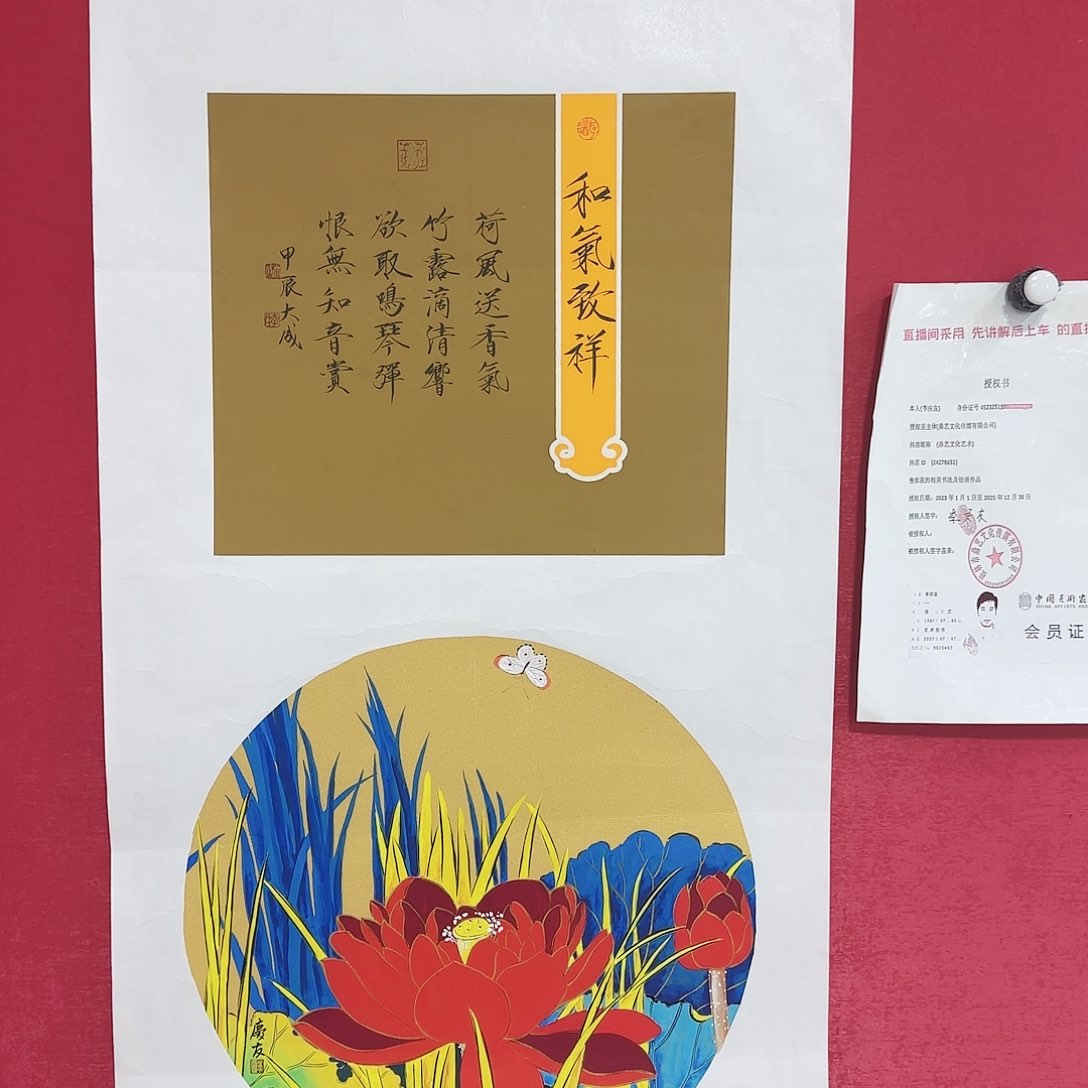 和氣致祥
荷風送香氣
竹露滴清響
欲取鳴琴彈
恨無知音賞
甲辰大成
慶友
直播间采用 先讲解后上车 的直播
授权书
本人(李庆友) 身份证号 452325198
授权至主体(鼎艺文化传媒有限公司)
抖音昵称 (鼎艺文化艺术)
抖店 ID (24278651)
售卖我的相关书法及绘画作品
授权日期: 2023 年 1 月 1 日至 2025 年 12 月 30 日
授权人签字: 李庆友
被授权人:
被授权人签字盖章:
会员证